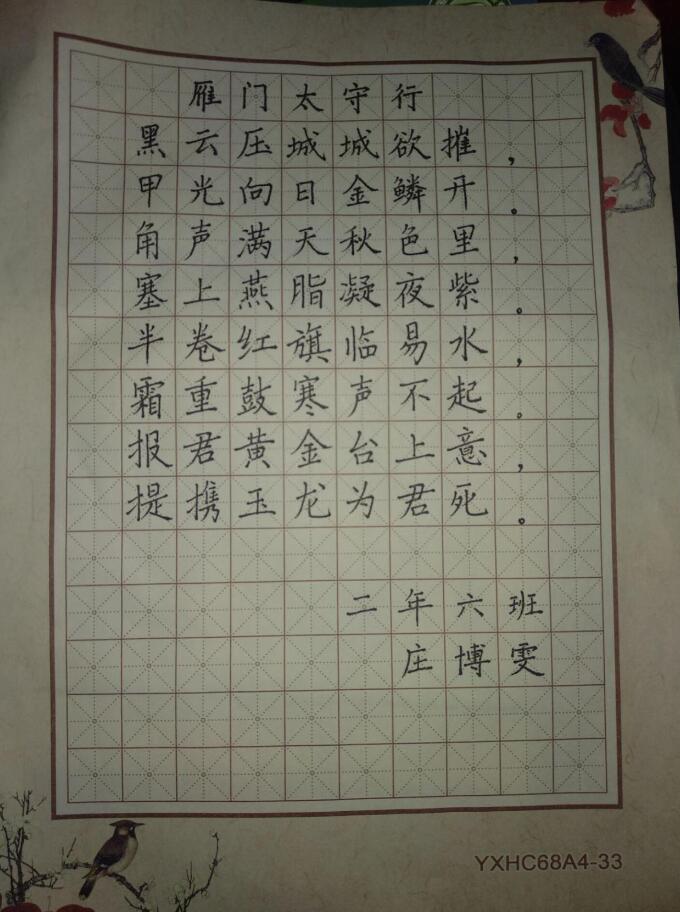 雁门太守行
黑云压城城欲摧，
甲光向日金鳞开。
角声满天秋色里，
塞上燕脂凝夜紫。
半卷红旗临易水，
霜重鼓寒声不起。
报君黄金台上意，
提携玉龙为君死。
二年六班
庄博雯
YXHC68A4-33